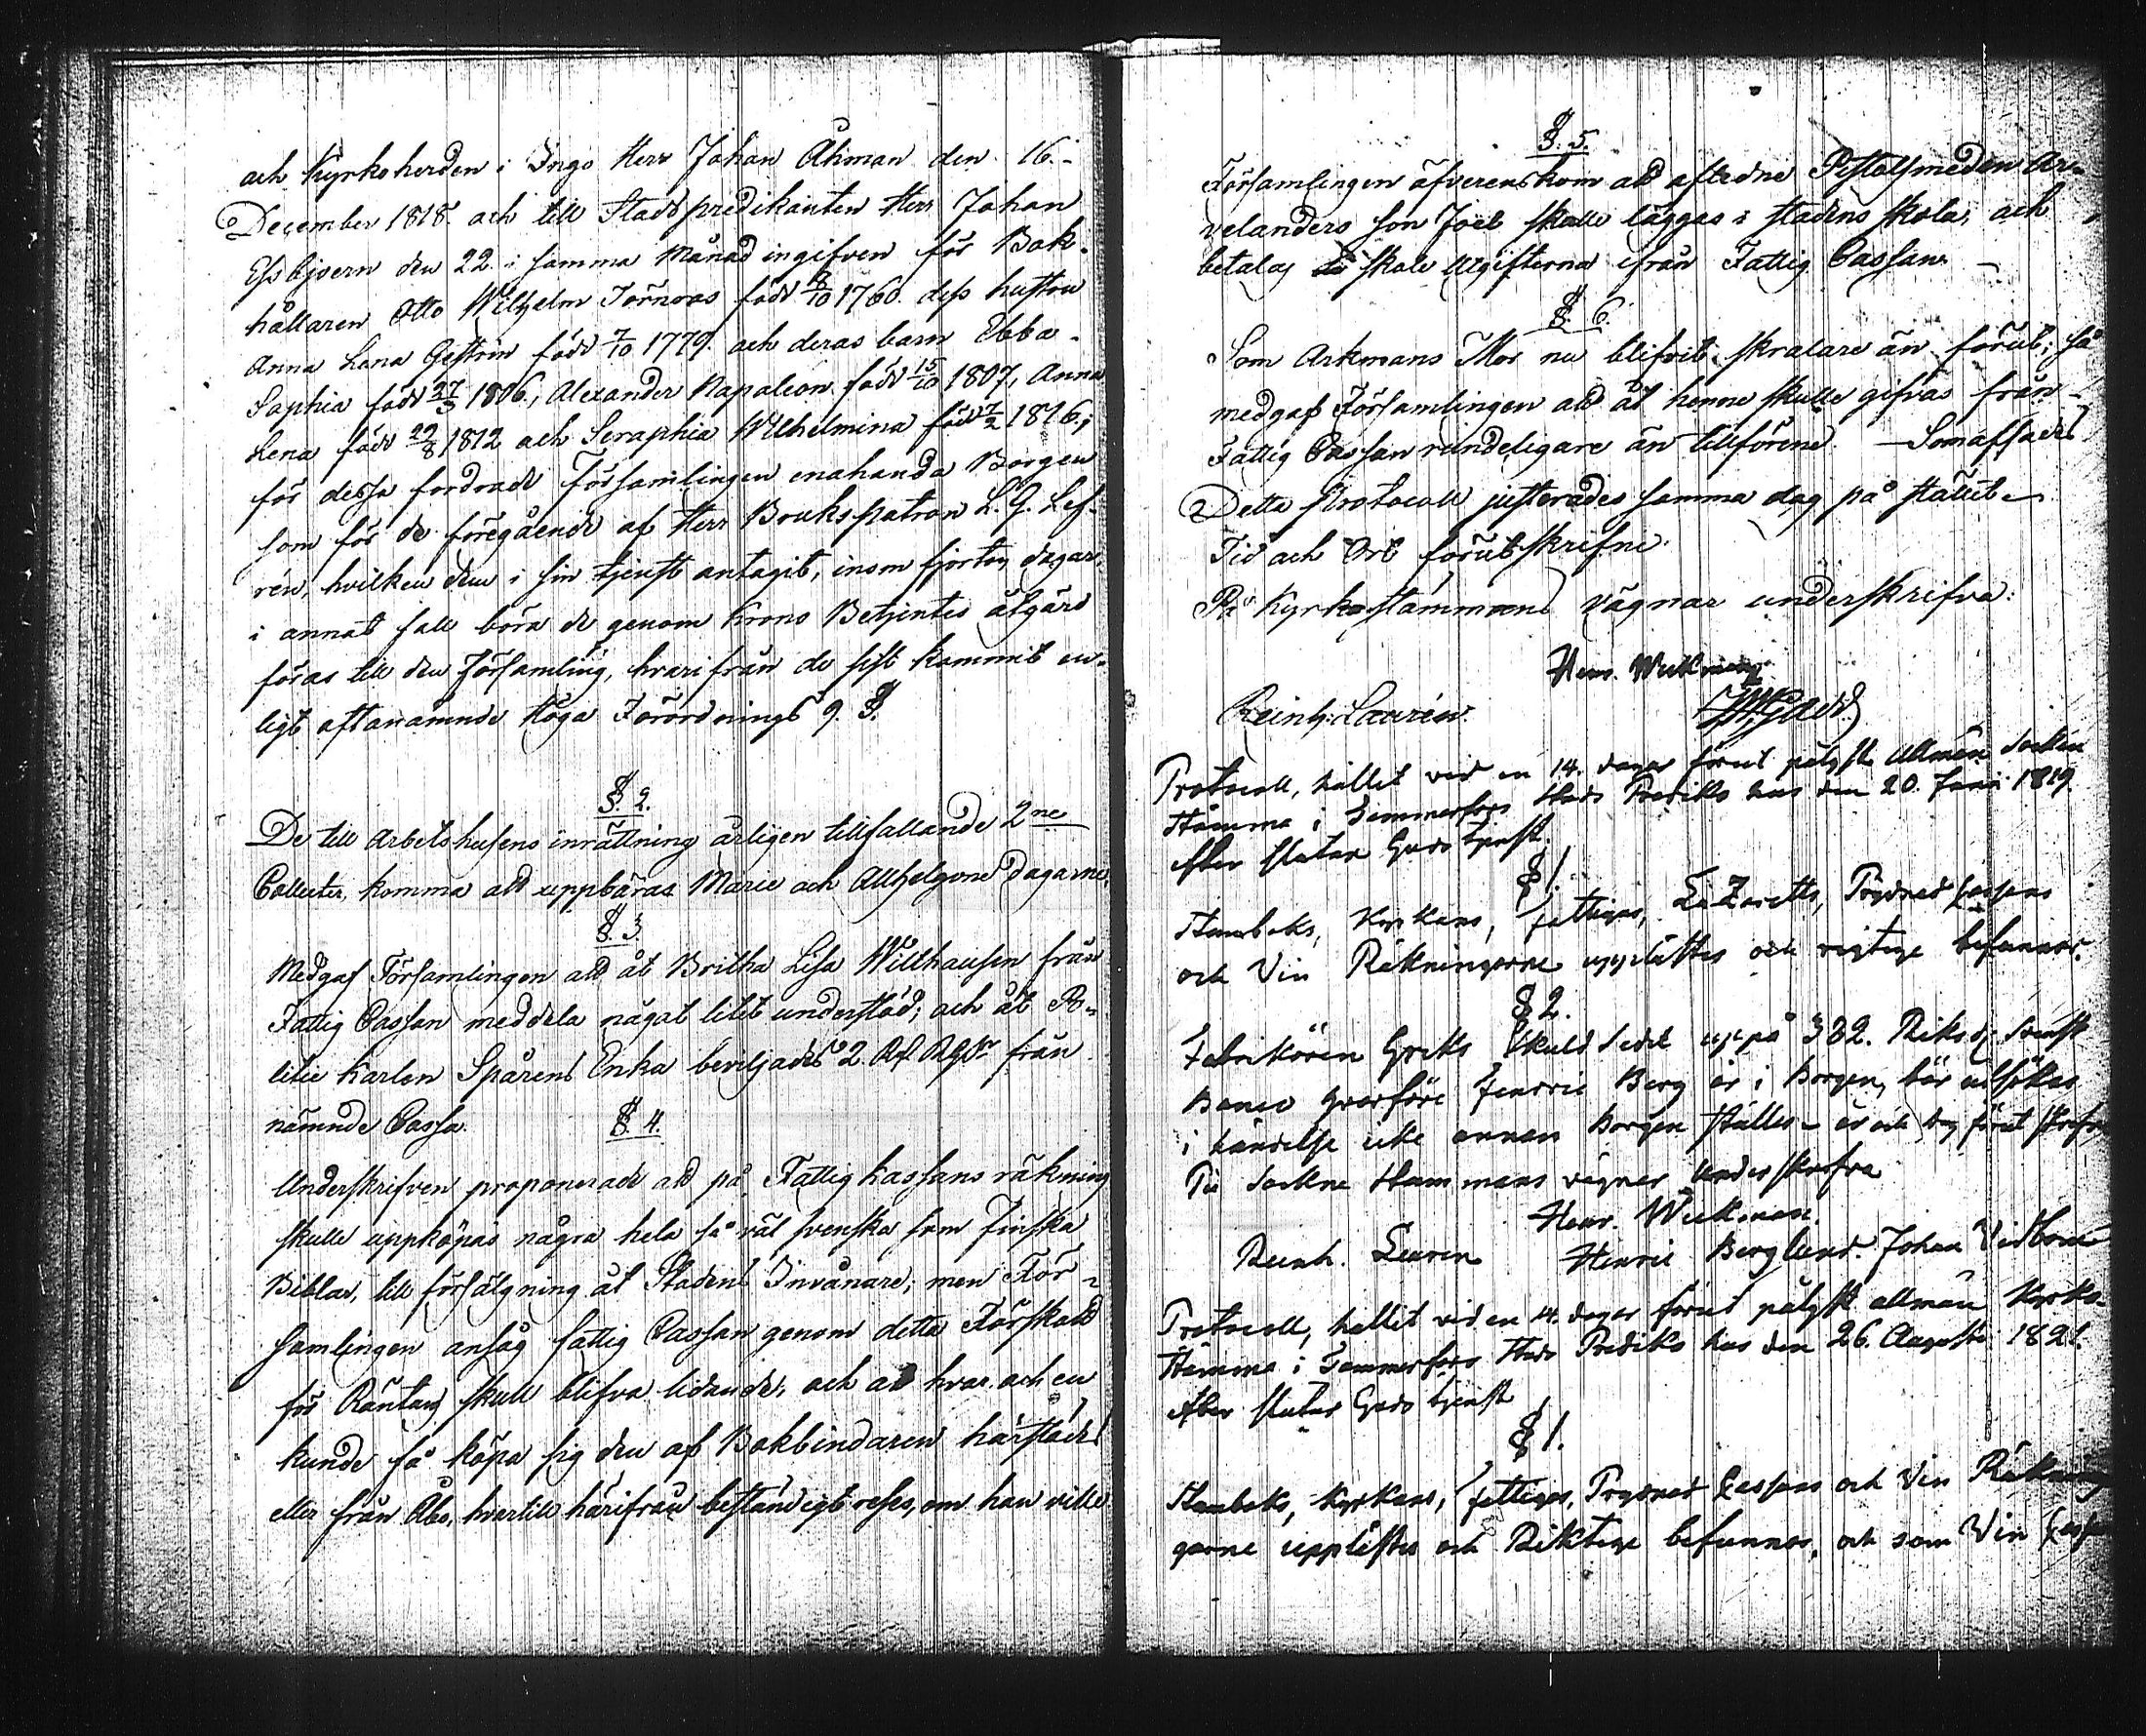 och Kyrkoherden i Ingo Herr Johan Åhman den 16.
December 1818. och till Stadspredikanten Herr Johan
Essbjoern den 22. i samma Månad ingifven för Bok-
hållaren Otto Wilhelm Törnroos född 8/10 1760. dess hustru
Anna Lena Gestrin född 7/10 1779. och deras barn Ebba
Sophia född 27/3 1806., Alexander Napoleon född 15/10 1807, Anna
Lena född 29/8 1812 och Seraphia Wilhelmina född 7/2 1816;
för dessa fordrade Församlingen enahanda Borgen
som för de föregående af Herr Brukspatron L. G. Lef-
rén, hvilken dem i sin tjenst antagit, inom fjorton dagar,
i annat fall böra de genom Krono Betjentes åtgärd
föras till den Församling, hvarifrån de sist kommit en-
ligt oftanämnde Höga Förordnings 9. §.
§. 2.
De till Arbetshusens inrättning årligen tillfallande 2ne
Collecter, komma att uppbäras Marie och Allhelgone dagarne.
§. 3.
Medgaf Församlingen att åt Britha Lisa Willhausen från
Fattig Cassan meddela något litet understöd; och åt Po-
litie Karlen Spårens Enka beviljades 2. Rf. Rgr. från
nämnde Cassa.
§. 4.
Underskrifven proponerade att på Fattig Kassans räkning
skulle uppköpas några hela så väl svenska som Finska
Biblar, till försälgning åt Stadens Invånare; men För-
samlingen ansåg fattig Cassan genom detta Förskott
för Räntan skull blifva lidande, och att hvar och en
kunde få köpa sig den af Bokbindaren härstädes
eller från Åbo, hvartill härifrån beständigt reses, om han ville
§. 5.
Församlingen öfverenskom att aftedne Pistolsmeden Ar-
velanders son Joel skulle läggas i stadens skola, och
betalas skole utgifterna ifrån Fattig Cassan. —
§. 6.
Som Arkmans Mor nu blifvit skralare än förut; så
medgaf Församlingen att åt henne skulle gifvas från
Fattig Cassan rundeligare än tillförene. — Som afsades
Detta Protocoll justerades samma dag på stället
Tid och Ort förutskrifne.
På Kyrkostämmans vägnar underskrifva:
Henr. Wickman
Reinh: Laurén. Gadd
Protocoll, hållet vid en 14. dagar förut pålyst Allmän Socken
Stämma i Tammerfors Stads Prediks hus den 20. Junii 1819.
efter slutad Guds tjenst.
§ 1.
Stamboks, Kyrkans, fattigas, LaZaretts, Prydnad Cassans
och Vin Räkningarne upplästes och rigtige befunnos.
§ 2.
Fabrikören Greks Skuld Sedel uppå 382. Riksd. Svensk
Banco hvarföre Henric Berg är i borgen, bör utsökas
i händelse icke annan borgen ställes — år och dag förut skrifn
På Sockne Stammans vägnar Underskrifva
Henr. Wickman.
Reinh. Lauren Henric Berglund. Johan Vidbom
Protocoll, hållit vid en 14. dagar förut pålyst allmän Kyrko-
Stämma i Tammerfors Stads Prediks hus den 26. Augusti 1821.
efter slutad Guds tjenst
§ 1.
Stamboks, Kyrkans, fattigas, Prydnad Cassans och Vin Räkning
garne upplästes och Riktige befunnos, och som Vin Cassa